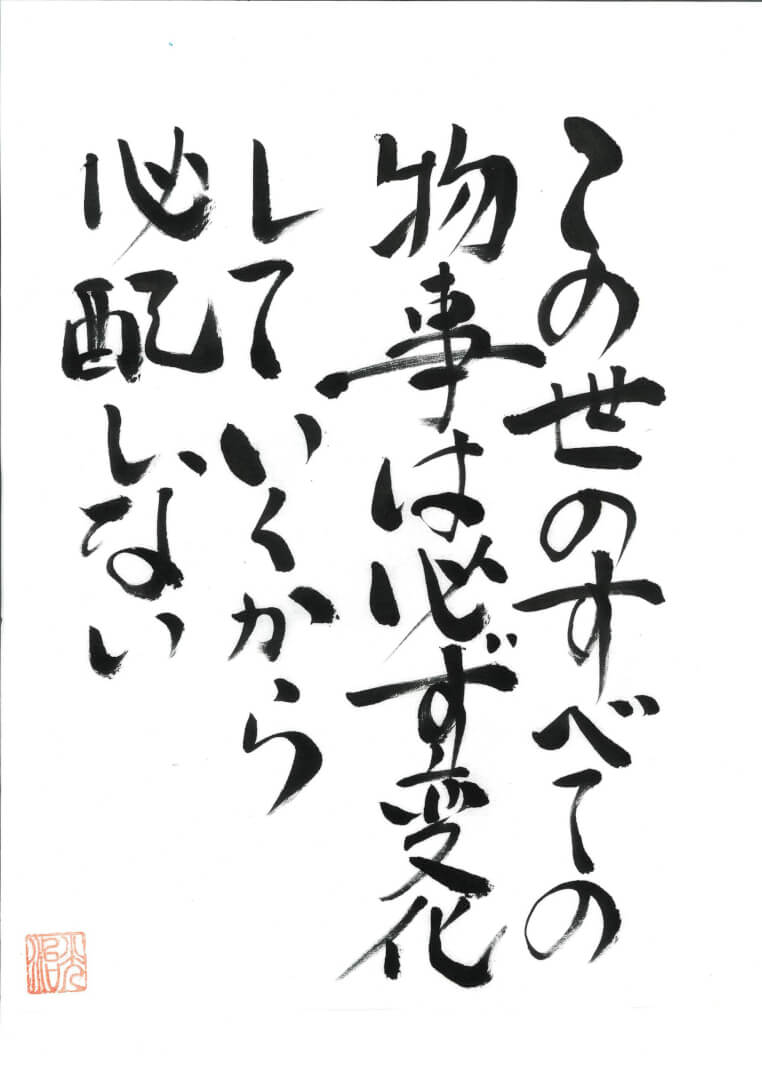 この世のすべての
物事は必ず変化
していくから
心配しない